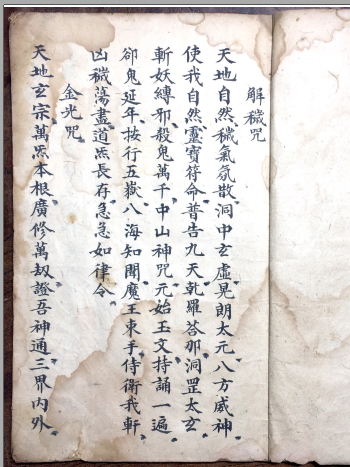 解穢咒
天地自然穢氣氛散洞中玄虛晃朗太元八方威神
使我自然靈寶符命普告九天乾羅荅那洞罡太玄
斬妖縛邪殺鬼萬千中山神咒元始玉文持誦一遍
卻鬼延年按行五嶽八海知聞魔王束手侍衛我軒
凶穢蕩盡道炁長存急急如律令
金光咒
天地玄宗萬炁本根廣修萬劫證吾神通三界內外